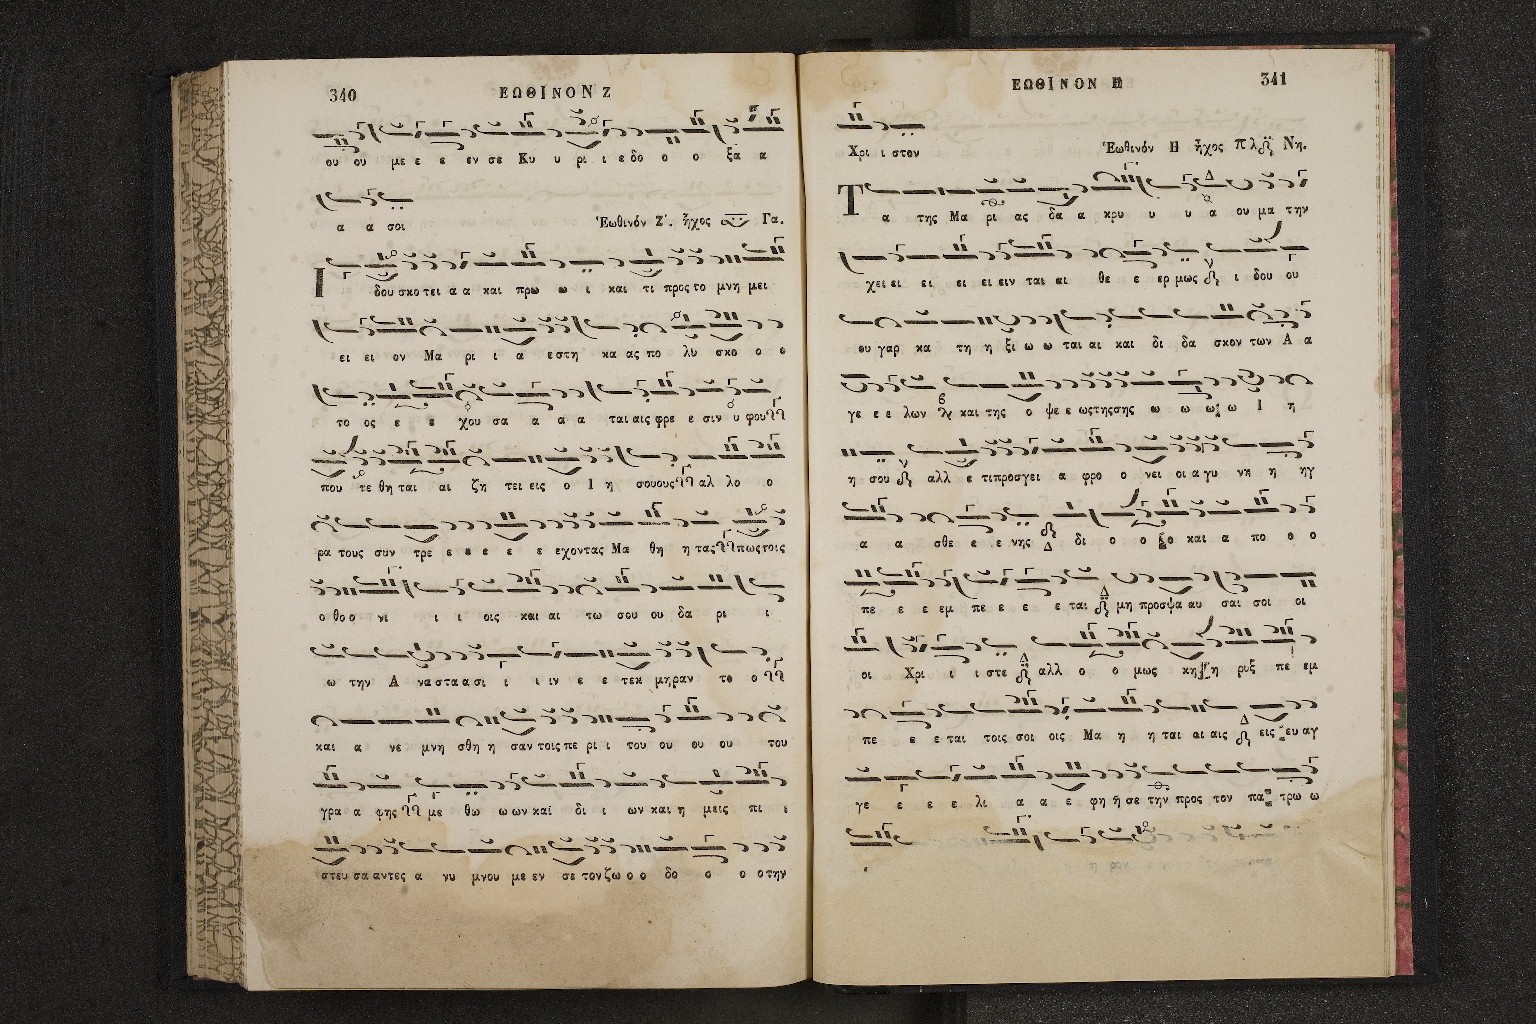 340 ΕΩΘΙΝΟΝ Ζ
ου ου με ε ε εν σε Κυ υ ρι ι ε δο ο ο ξα α
α α σοι Ἑωθινόν Ζ΄. ἦχος Γα.
Ι δου σκο τει α α και πρω ω ι και τι προς το μνη μει
ει ει ον Μα ρι ι α ε στη κα ας πο λυ σκο ο ο
το ος ε ε χου σα α α α ται αις φρε ε σιν υ φου
που τε θη ται αι ζη τει εις ο Ι η σουους αλ λο ο
ρα τους συν τρε ε ε ε ε ε εχοντας Μα θη η τας πως τοις
ο θο ο νι ι ι οις και αι τω σου ου δα ρι ι
ω την Α να στα α σι ι ι ιν ε ε τεκ μη ραν το ο
και α νε μνη σθη η σαν τοις πε ρι ι του ου ου ου του
γρα α φης με θω ω ων και δι ι ων και η μεις πι ι
στευ σα αντες α νυ μνου με εν σε τον ζω ο ο δο ο ο ο την
341 ΕΩΘΙΝΟΝ Η
Χρι ι στον Ἑωθινόν Η ἦχος πλ Νη.
Τ α της Μα ρι ας δα α κρυ υ υ α ου μα την
χει ει ει ει ει ειν ται αι θε ε ερ μως ι δου ου
ου γαρ κα τη η ξι ω ω ται αι και δι δα σκον των Α α
γε ε ε λων και της ο ψε ε ως της σης ω ω ω ω Ι η
η σου αλλ ε τι προσ γει α φρο ο νει οι α γυ νη η ηγ
α α σθε ε ε νης δι ο ο ο και α πο ο ο
πε ε ε εμ πε ε ε ε ται μη προσψα αυ σαι σοι οι
οι Χρι ι ι στε αλλ ο ο μως κη η ρυξ πε εμ
πε ε ε ται τοις σοι οις Μα η η ται αι αις εις ευ αγ
γε ε ε ε λι α α ε φη ῆ σε την προς τον πα τρω ω